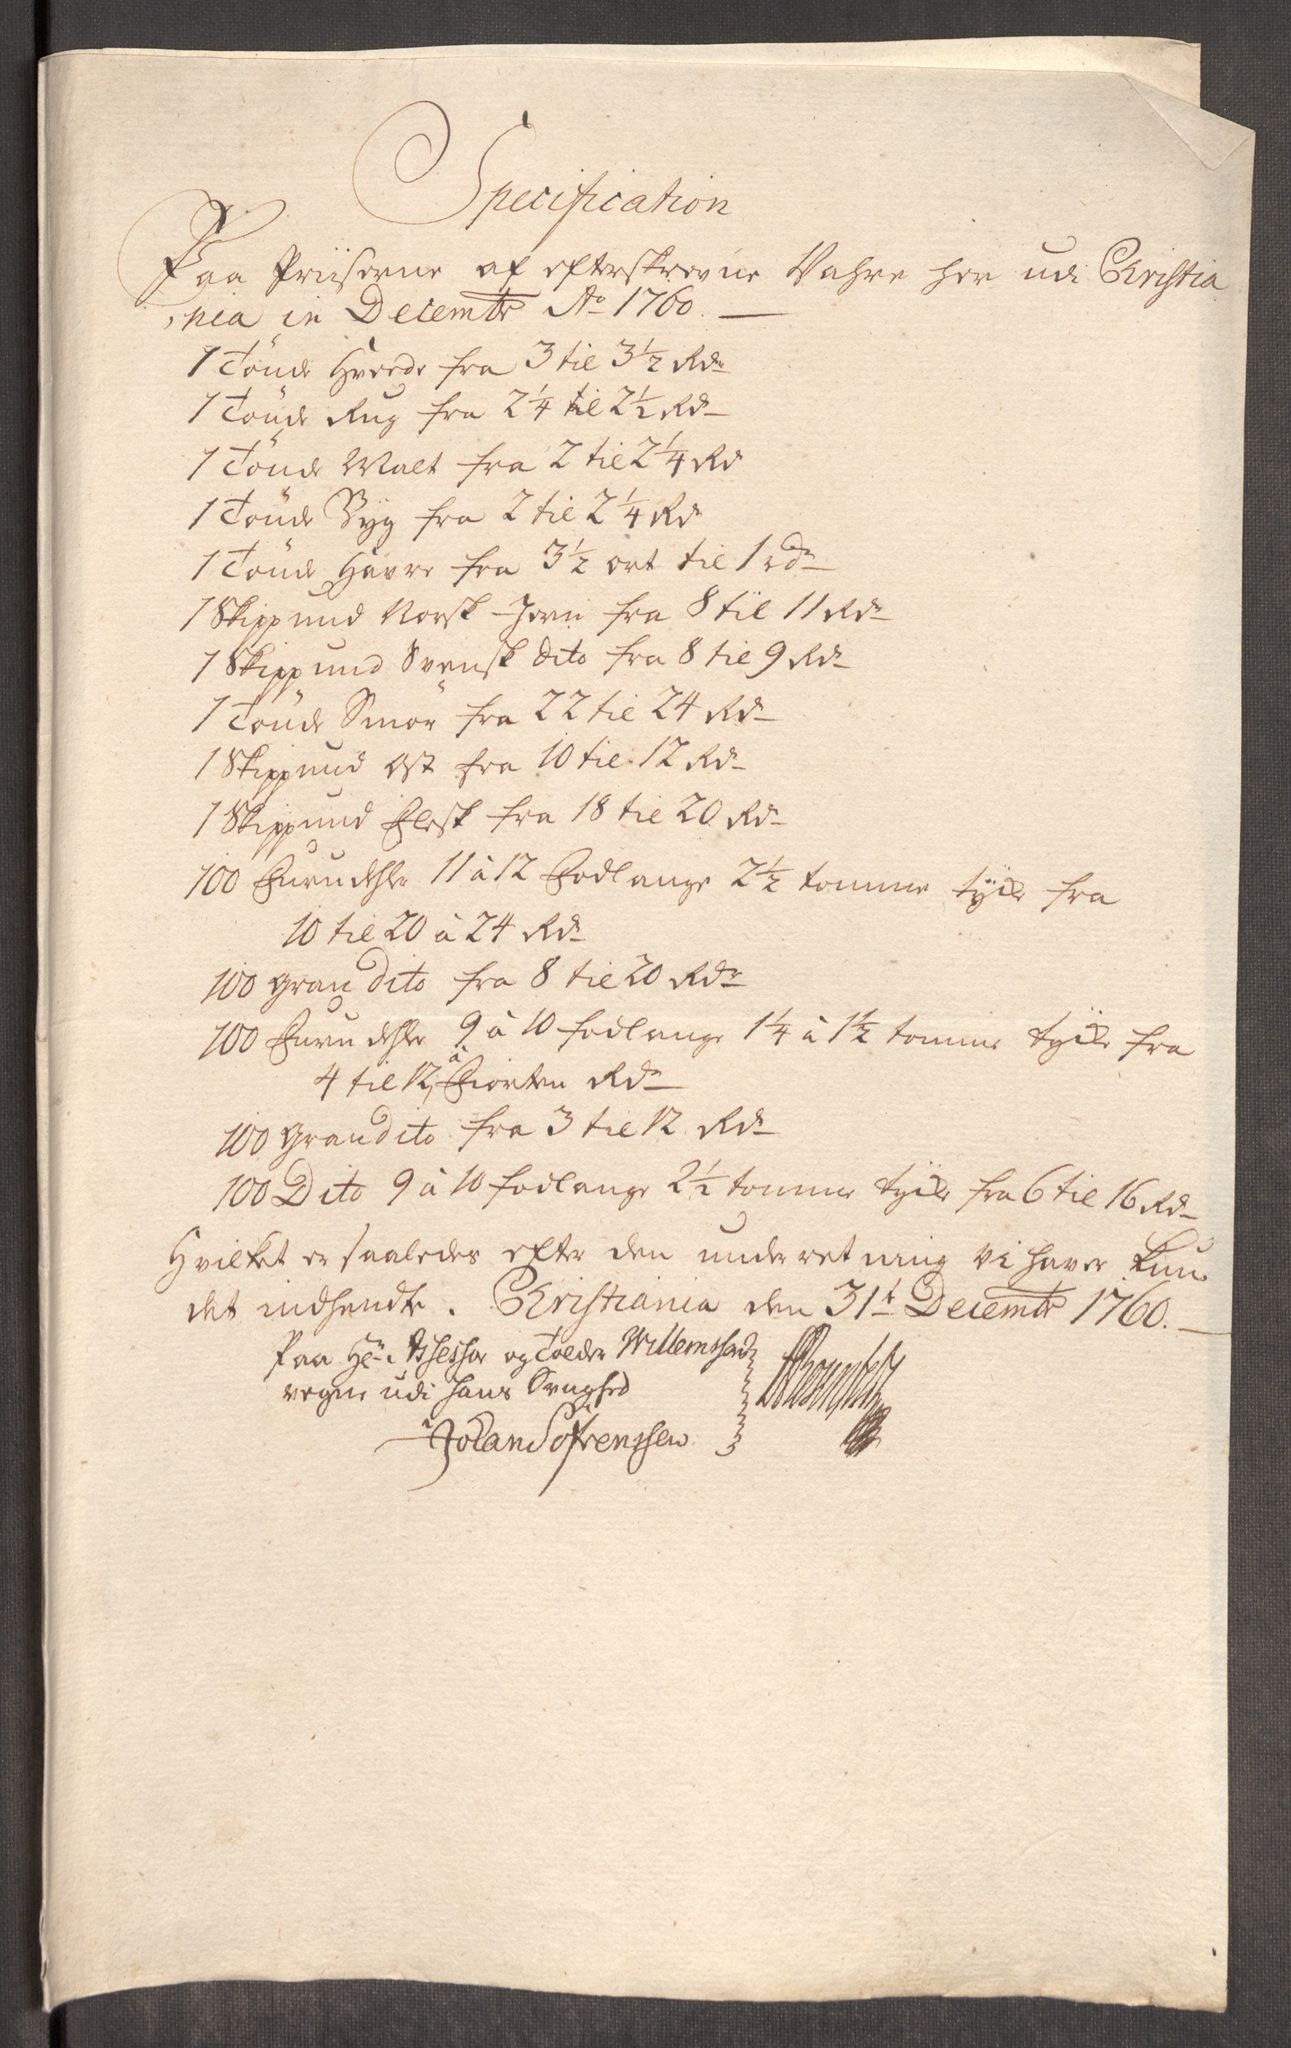 Specification
Paa Priiserne af efterskrevne Vahre her udi Christia
nia in Decembr Ao 1760.
1 Tönde Hvede fra 3 til 3½ Rdr
1 Tönde Rug fra 2¼ til 2½ Rdr
1 Tönde Malt fra 2 til 2¼ Rd
1 Tönde Byg fra 2 til 2¼ Rdr
1 Tönde Havre fra 3½ ort til 1 rdr
1 Skippund Norsk Jern fra 8 til 11 Rdr
1 Skippund Svensk dito fra 8 til 9 Rdr
1 Tönde Smör fra 22 til 24 Rdr
1 Skippund Ost fra 10 til 12 Rdr
1 Skippund Flesk fra 18 til 20 Rdr
100 Furu dehle 11 à 12 Fodlange 2½ tomme tyke fra
10 til 20 à 24 Rdr
100 gran dito fra 8 til 20 Rdr
100 Furu dehle 9 à 10 fodlange 1¼ à 1½ tomme tyke fra
4 til 12 à Fiorten Rdr
100 gran dito fra 3 til 12 Rdr
100 Dito 9 à 10 fodlange 2½ tomme tyke fra 6 til 16 Rdr
Hvilket er saaledes efter den underretning vi haver kun
det indhendte. Christiania den 31t Decembr 1760.
Paa Hr Assessor og Tolder Willemsens
vegne udi hans Svaghed
Johan Sörenssen